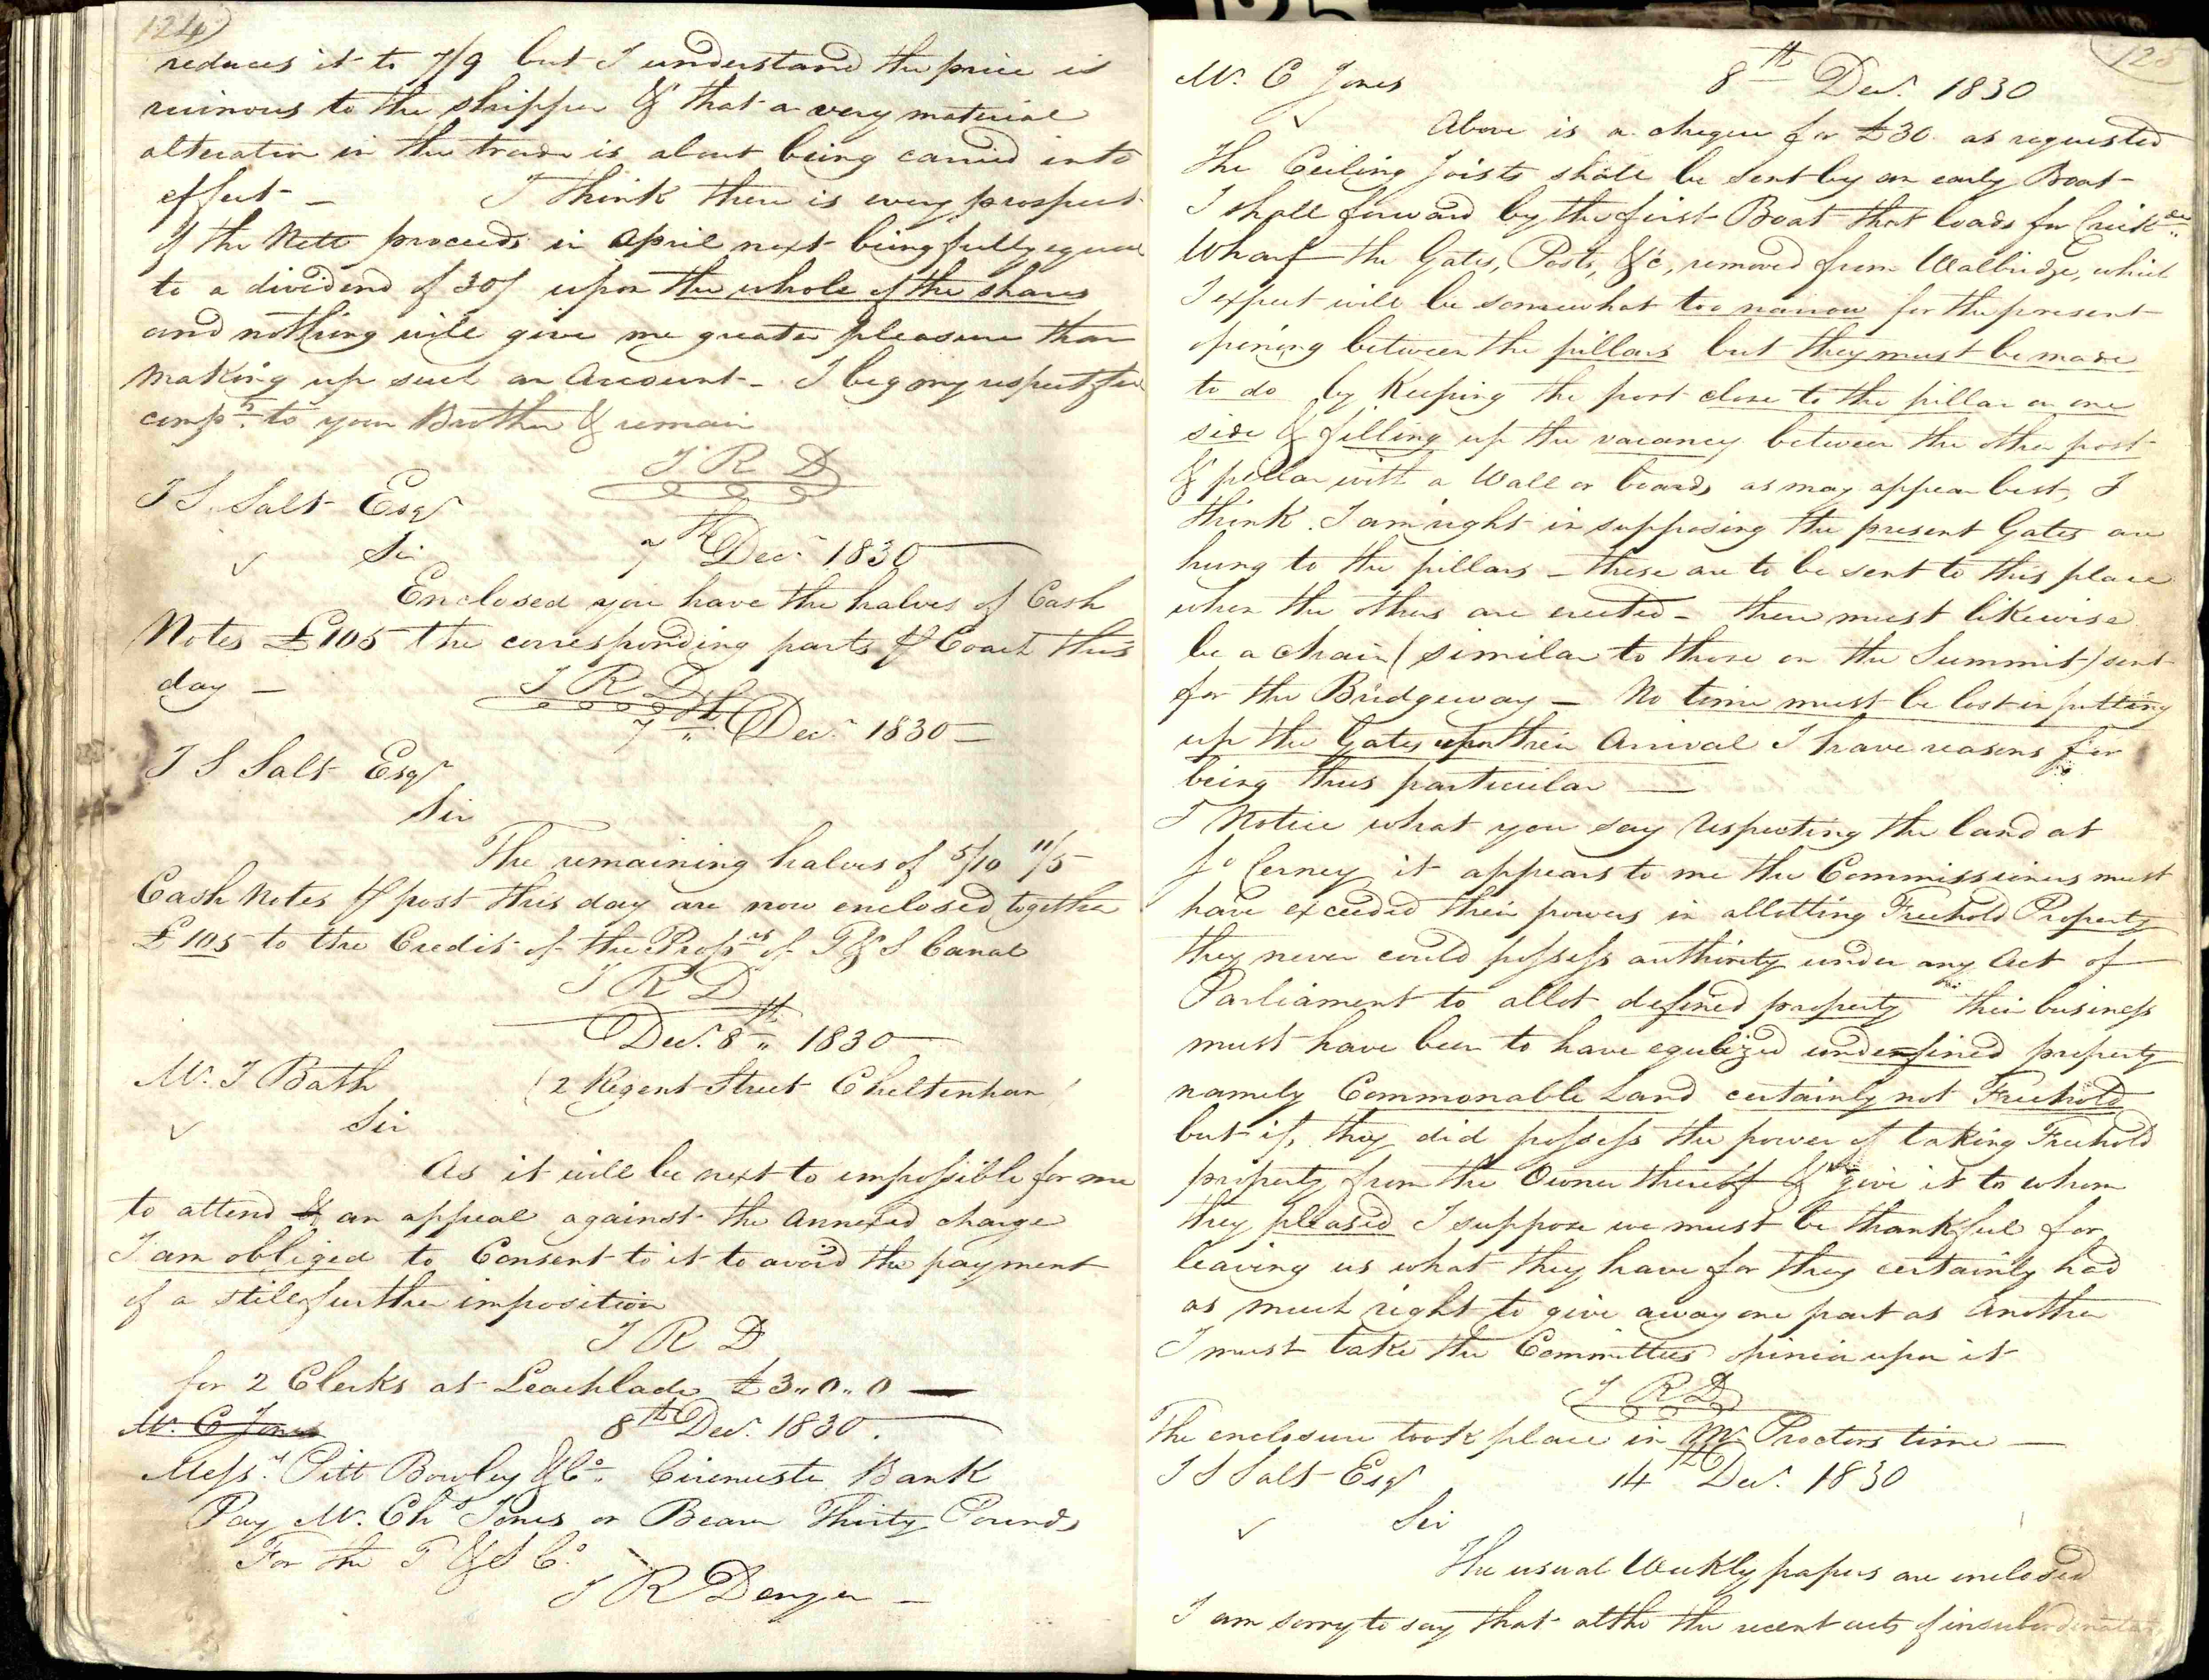 124)
reduces it to 7/9 but I understand the price is
ruinous to the shipper & that a very material
alteration in the trade is about being carried into
effect – I think there is every prospect
of the Nett proceeds in April next being fully equal
to a dividend of 30/ upon the whole of the shares
and nothing will give me greater pleasure than
making up such an Account – I beg my respectful
compts to your Brother & remain
J R D
J S Salt Esqr
Sir 7th Decr 1830
Enclosed you have the halves of Cash
Notes £105 the corresponding parts pr Coach this
day –
J R D
7th Decr 1830 –
J S Salt Esqr
Sir
The remaining halves of 5/10 11/5
Cash Notes pr post this day are now enclosed together
£105 to the Credit of the Proprs of T & S Canal
J R D
Decr 8th 1830
Mr. J Bath (2 Regent Street Cheltenham)
Sir
As it will be next to impossible for me
to attend & an appeal against the Annexed charge
I am obliged to Consent to it to avoid the payment
of a still further imposition
J R D
for 2 Clerks at Leachlade £3,,0,,0 —
Mr. C Jones
8th Decr. 1830.
Messrs Pitt Bowley & Co. Cirencester Bank
Pay Mr. Chs Jones or Bearer Thirty Pounds
For the T & S Co.
J R Denyer –
125
Mr. C Jones 8th Decr. 1830
Above is a cheque for £30 as requested
The Ceiling Joists shall be sent by an early Boat
I shall forward by the first Boat that loads for Crickde
Wharf the Gates, Posts, &c, removed from Walbridge, which
I expect will be somewhat too narrow for the present
opening between the pillars but they must be made
to do by Keeping the post close to the pillar on one
side & filling up the vacancy between the other post
& pillar with a Wall or boards as may appear best, I
think I am right in supposing the present Gates are
hung to the pillars – these are to be sent to this place
when the others are erected – there must likewise
be a chain (similar to those on the Summit) sent
for the Bridgeway – No time must be lost in putting
up the Gates upon their Arrival I have reasons for
being thus particular —
I Notice what you say respecting the land at
So Cerney, it appears to me the Commissioners must
have exceeded their powers in allotting Freehold Property
they never could possess authority under any Act of
Parliament to allot defined property their business
must have been to have equalized undefined property
namely Commonable Land certainly not Freehold
but if, they did possess the power of taking Freehold
property from the Owner thereof & give it to whom
they pleased I suppose we must be thankful for
leaving us what they have for they certainly had
as much right to give away one part as Another
I must take the Committees opinion upon it
J R D
The enclosure took place in Mr Proctors time —
J S Salt Esqr 14th Decr. 1830
Sir
The usual Weekly papers are enclosed
I am sorry to say that altho the recent acts of insubordination